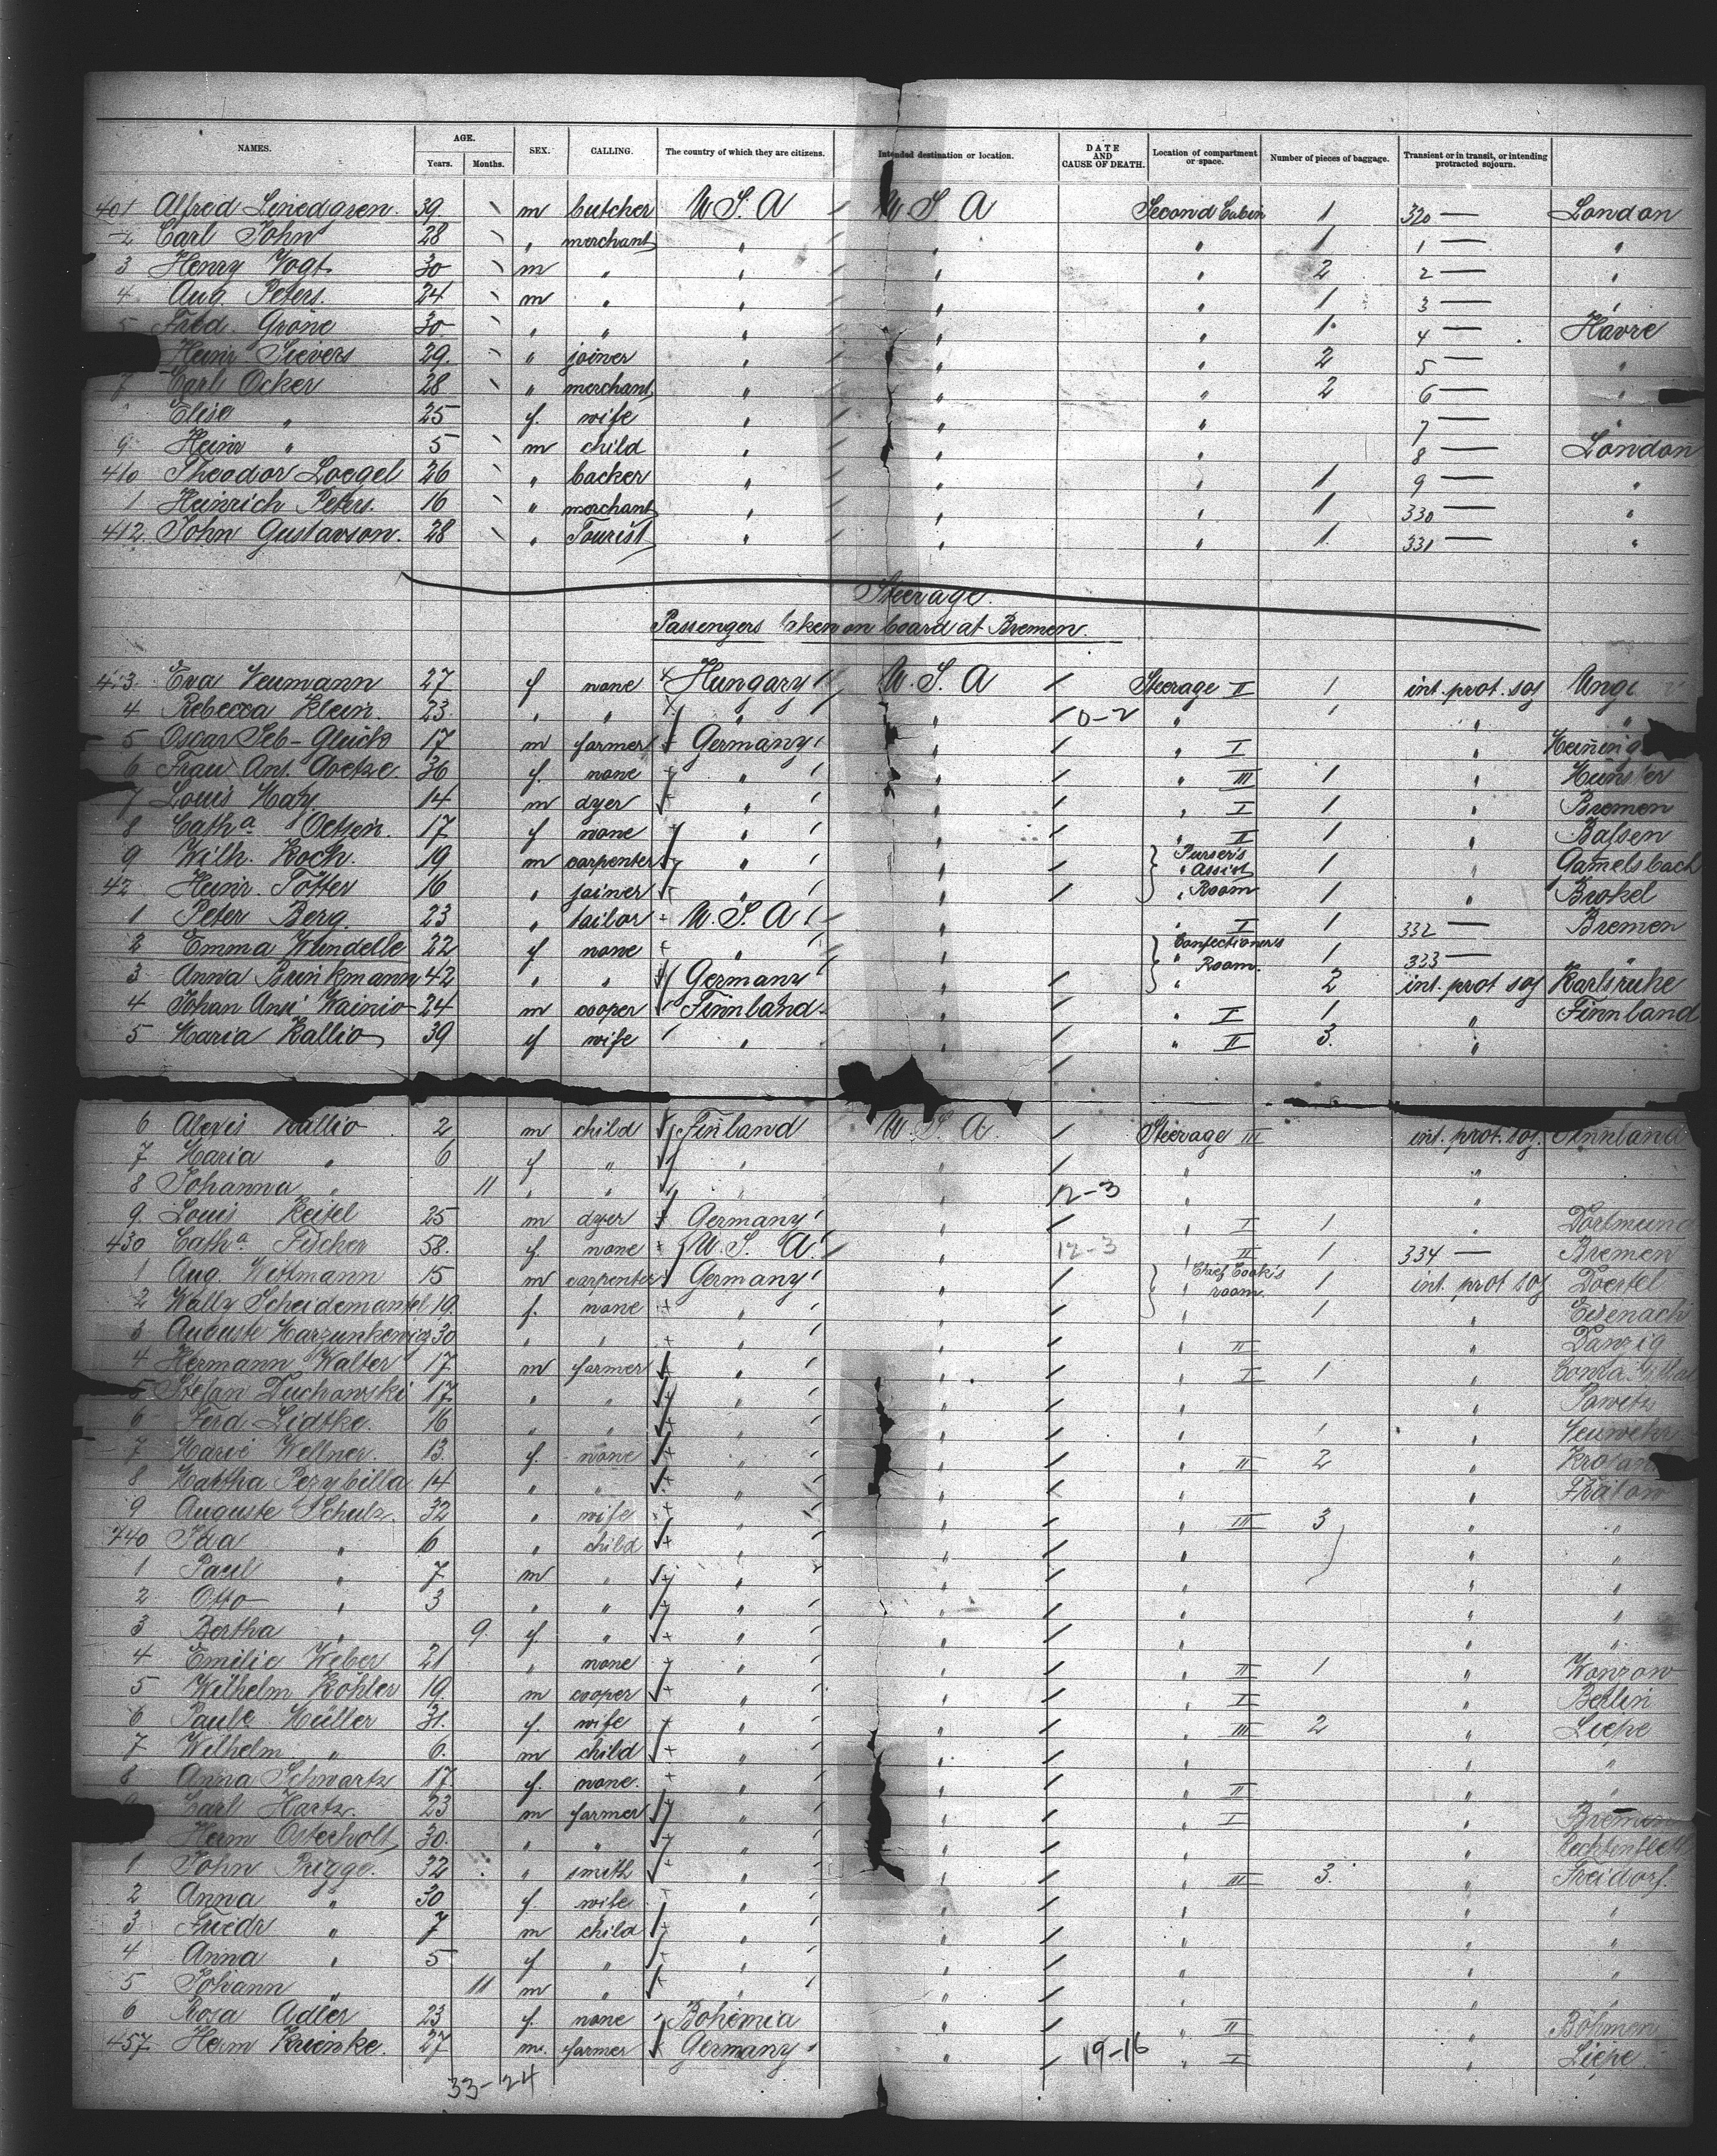 NAMES. AGE. Years. Months. SEX. CALLING. The country of which they are citizens. Intended destination or location. DATE AND CAUSE OF DEATH. Location of compartment or space. Number of pieces of baggage. Transient or in transit, or intending protracted sojourn.
401 Alfred Linedgren. 39 m butcher U.S.A U S A Second Cabin 1 320 — London
2 Carl John 28 " merchant " " " 1 1 — "
3 Henry Vogt. 30 m " " " " 2 2 — "
4 Aug. Peters. 24 m " " " " 1 3 — "
5 Fred. Gröne 30 " " " " " 1 4 — Havre
Heinr Sievers 29. " joiner " " " 2 5 — "
7 Carl Ocker 28 " merchant " " " 2 6 — "
Elise " 25 f. wife " " " 7 — "
9 Heinr " 5 m child " " " 8 — London
410 Theodor Loegel 26 " backer " " " 1 9 — "
1 Heinrich Peters. 16 " merchant " " " 1 330 — "
412 John Gustavson. 28 " Tourist " " " 1 331 — "
Steerage.
Passengers taken on board at Bremen.
413 Eva Neumann 27 f none Hungary U.S.A Steerage II 1 int. prot. soj
4 Rebecca Klein. 23. " " " " 0-2 " 1 " "
5 Oscar Seb-Glück 17 m farmer Germany " " I "
6 Frau Ant. Goetze. 36 f. none " " " III 1 " Münster
7 Louis May 14 m dyer " " " I 1 " Bremen
8 Catha. Oetjen. 17 f none " " " II 1 "
9 Wilh. Koch. 19 m carpenter " " Purser's Assist Room 1 " Gamelsbach
42 Heinr. Tötter 16 " joiner " " " 1 " Brokel
1 Peter Berg. 23 " tailor U.S.A " " I 1 332 — Bremen
2 Emma Wundelle 22 f none " " Confectioners Room. 1 333 —
3 Anna Brinkmann 42 " " Germany " " 2 int. prot soj Karlsruhe
4 Johan Ant Wainio 24 m cooper Finnland " " I 1 " Finnland
5 Maria Kallio 39 f wife " " " II 3. "
6 Alexis Kallio 2 m child Finland U.S.A. Steerage III int. prot. soj. Finnland
7 Maria " 6 f " " " " "
8 Johanna " 11 " " " " 12-3 " "
9. Louis Keisel 25 m dyer Germany " " I 1 " Dortmund
430 Catha. Fischer 58. f. none U.S. A. " 12-3 " II 1 334 — Bremen
1 Aug. Wittmann 15 m carpenter Germany " Chief Cook's room. 1 int. prot soj
2 Wally Scheidemantel 19. f. none " " " 1 " Eisenach
3 Auguste Marzunkewicz 30 " " " " " II " Danzig
4 Hermann Walter 17 m farmer " " " I 1 "
5 Stefan Duchowski 17. " " " " " "
6 Ferd. Lidtke. 16 " " " " " 1 "
7 Marie Wellner. 13. f. none " " " II 2 "
8 Martha Pezybilla 14 " " " " " " Flatow
9 Auguste Schulz. 32 " wife " " " III 3 " "
440 Ida " 6 " child " " " " "
1 Paul " 7 m " " " " " "
2 Otto " 3 " " " " " " "
3 Bertha " 9 f. " " " " " "
4 Emilie Weber 21 " none " " " II 1 " Wonzow
5 Wilhelm Köhler 19. m cooper " " " I " Berlin
6 Paule Müller 31. f. wife " " " III 2 " Liepe
7 Wilhelm " 6. m child " " " " "
8 Anna Schwartz 17. f. none. " " " II " "
Carl Hartz. 23 m farmer " " " I " Bremen
Herm Osterholt 30. " " " " " "
1 John Brigge. 32 " smith " " " III 3. "
2 Anna " 30 f. wife " " " " "
3 Friedr " 7 m child " " " " "
4 Anna " 5 f " " " " " "
5 Johann " 11 m " " " " " "
6 Rosa Adler 23 f. none Bohemia " " II " Böhmen
457. Herm Krienke. 27 m. farmer Germany " 19-16 " I " Liepe
33-24